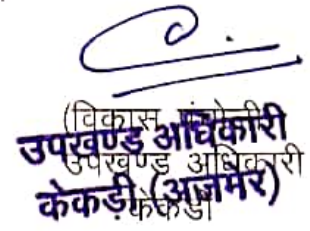 (विकास
उपखण्ड अधिकारी
उपखण्ड अधिकारी
केकड़ी (अजमेर)
केकडी